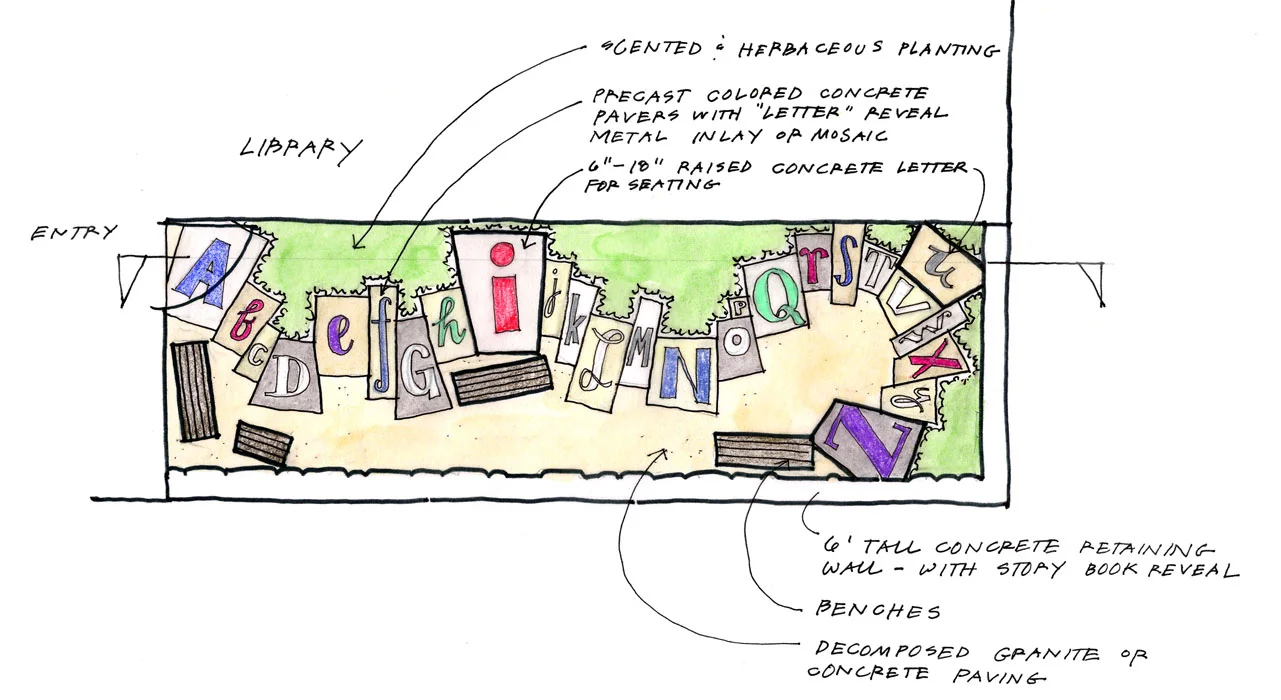 SCENTED & HERBACEOUS PLANTING
PRECAST COLORED CONCRETE
PAVERS WITH "LETTER" REVEAL
METAL INLAY OR MOSAIC
LIBRARY
6"-18" RAISED CONCRETE LETTER
FOR SEATING
ENTRY
A
b
c
D
e
f
G
h
i
j
k
l
M
N
O
P
Q
r
S
T
u
V
W
X
y
Z
6' TALL CONCRETE RETAINING
WALL - WITH STORY BOOK REVEAL
BENCHES
DECOMPOSED GRANITE OR
CONCRETE PAVING